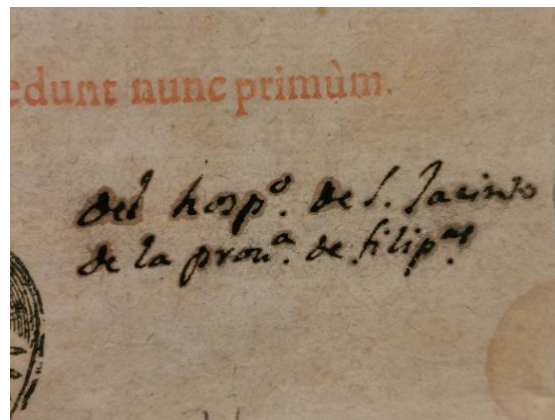 edunt nunc primùm.
del hosp.º de S. Jacinto
de la prou.ª de filip.as